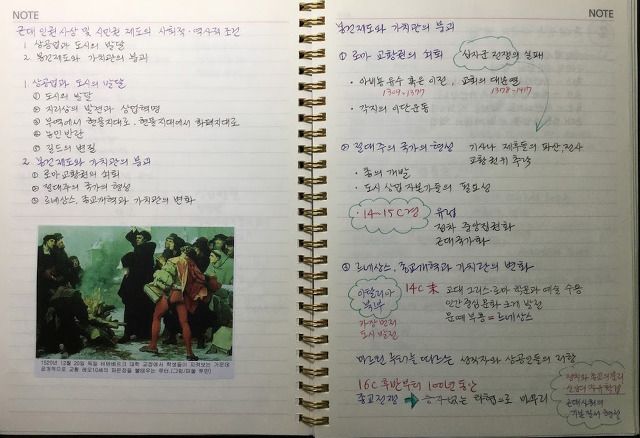 NOTE
근대 인권사상 및 시민권 제도의 사회적·역사적 조건
1. 상공업과 도시의 발달
2. 봉건제도와 가치관의 붕괴
1. 상공업과 도시의 발달
① 도시의 발달
② 지리상의 발견과 상업혁명
③ 부역에서 현물지대로, 현물지대에서 화폐지대로
④ 농민반란
⑤ 길드의 변질
2. 봉건제도와 가치관의 붕괴
① 로마교황권의 쇠퇴
② 절대주의 국가의 형성
③ 르네상스, 종교개혁과 가치관의 변화
1520년 12월 20일 독일 비텐베르크 대학 교정에서 학생들이 지켜보는 가운데
공개적으로 교황 레오10세의 파문장을 불태우는 루터.(그림/파울 투만)
NOTE
봉건제도와 가치관의 붕괴
① 로마 교황권의 쇠퇴
십자군 전쟁의 실패
· 아비뇽 유수 혹은 이전, 교회의 대분열
1309~1377 1378~1417
· 각지의 이단운동
② 절대주의 국가의 형성
기사나 제후들의 파산, 전사
교황권위 추락
· 총의 개발
· 도시 상업자본가들의 필요성
· 14~15C경
유럽
점차 중앙집권화
근대국가화
③ 르네상스, 종교개혁과 가치관의 변화
이탈리아
북부
가장 먼저
도시 발전
14C 末 고대 그리스·로마 학문과 예술 수용
인간중심문화 크게 발전
문예부흥 = 르네상스
마르틴 루터를 따르는 성직자와 상공인들의 저항
16C 후반부터 100여년 동안
종교전쟁 → 승자없는 타협으로 마무리
정치와 종교의 분리
근대사회의
기본질서 형성